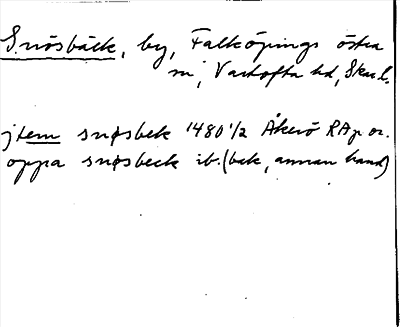 Snösbäck, by, Falköpings östra
sn, Vartofta hd, Skar.l.
jtem snøsbek 1480 1/2 Åkerö RAp or.
oppa snøsbeck ib. (bak, annan hand)